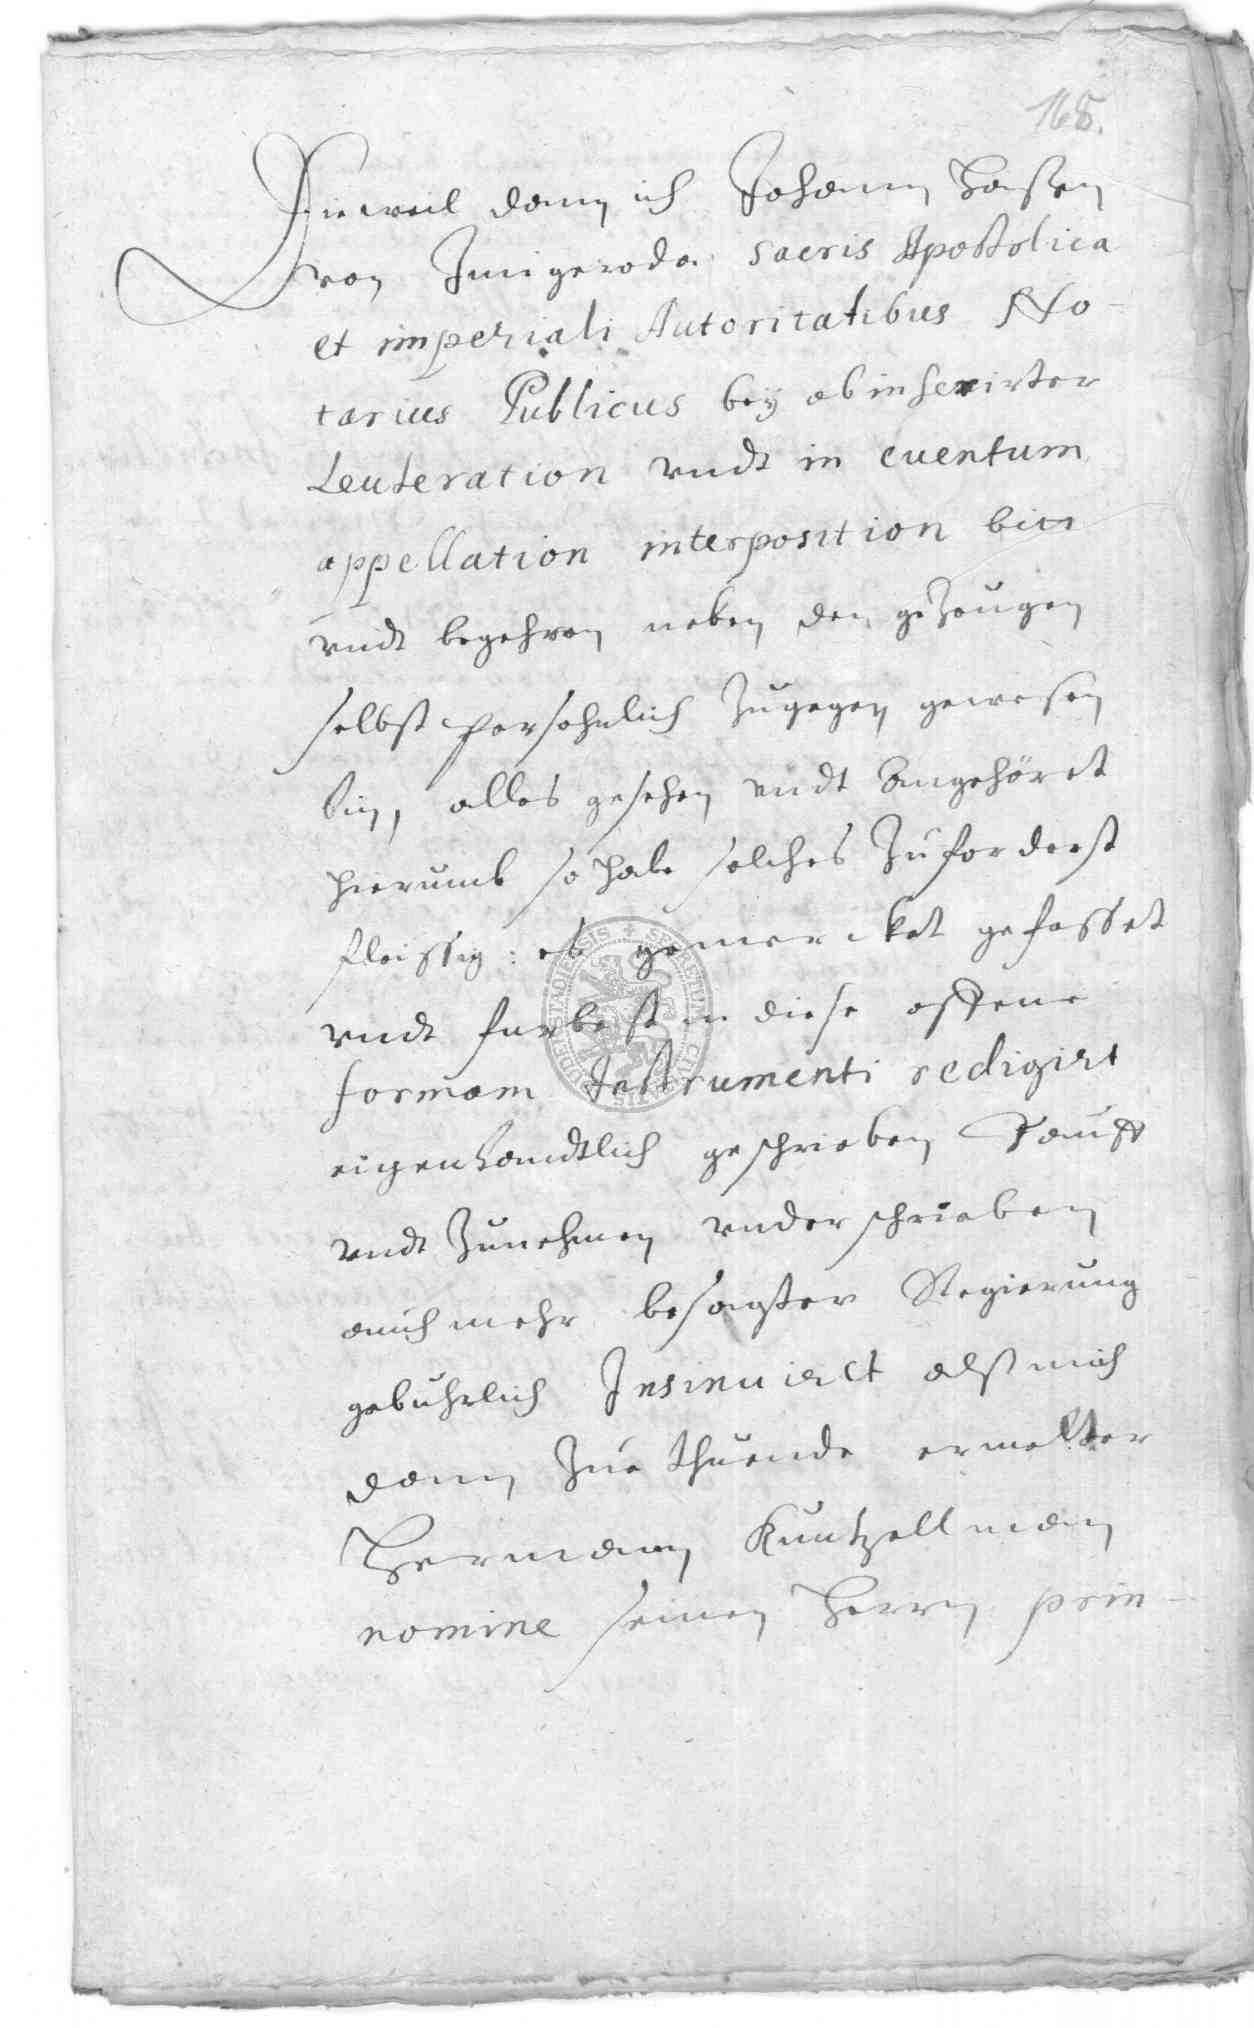 168.
Dieweil dann ich Johann Haßen
von Immigeroda Sacris Apostolica
et imperiali Autoritatibus No-
tarius Publicus beÿ obinserirter
Leuteration vndt in euentum
appellation interposition bitt
vndt begehren neben den geZeugen
selbst persohnlich Zugegen gewesen
bin, alles gesehen vndt Angehöret
hierumb so habe solches Zuforderst
fleissig: ab gemercket gefasset
vndt furbest in diese offene
formam Instrumenti redigirt
eigenhandtlich geschrieben Tauff
vndt Zunehmen vnderschrieben
auch mehr besagter Regierung
gebuhrlich Insinuiret alß mich
dann Zue thuende ermelter
Hermann Kuntzellman
nomine seinen Herrn prin-